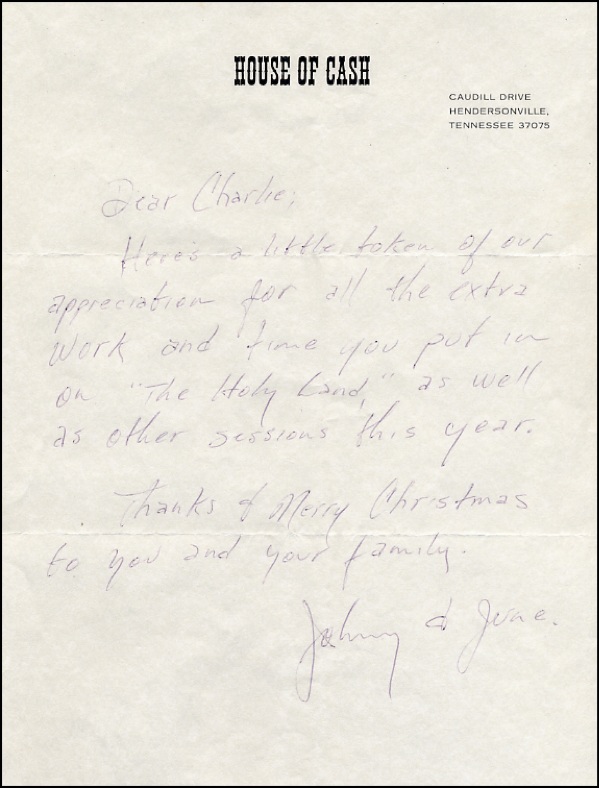 HOUSE OF CASH
CAUDILL DRIVE
HENDERSONVILLE,
TENNESSEE 37075
Dear Charlie;
Here's a little token of our
appreciation for all the extra
work and time you put in
on "The Holy Land," as well
as other sessions this year.
Thanks & Merry Christmas
to you and your family.
Johnny & June.